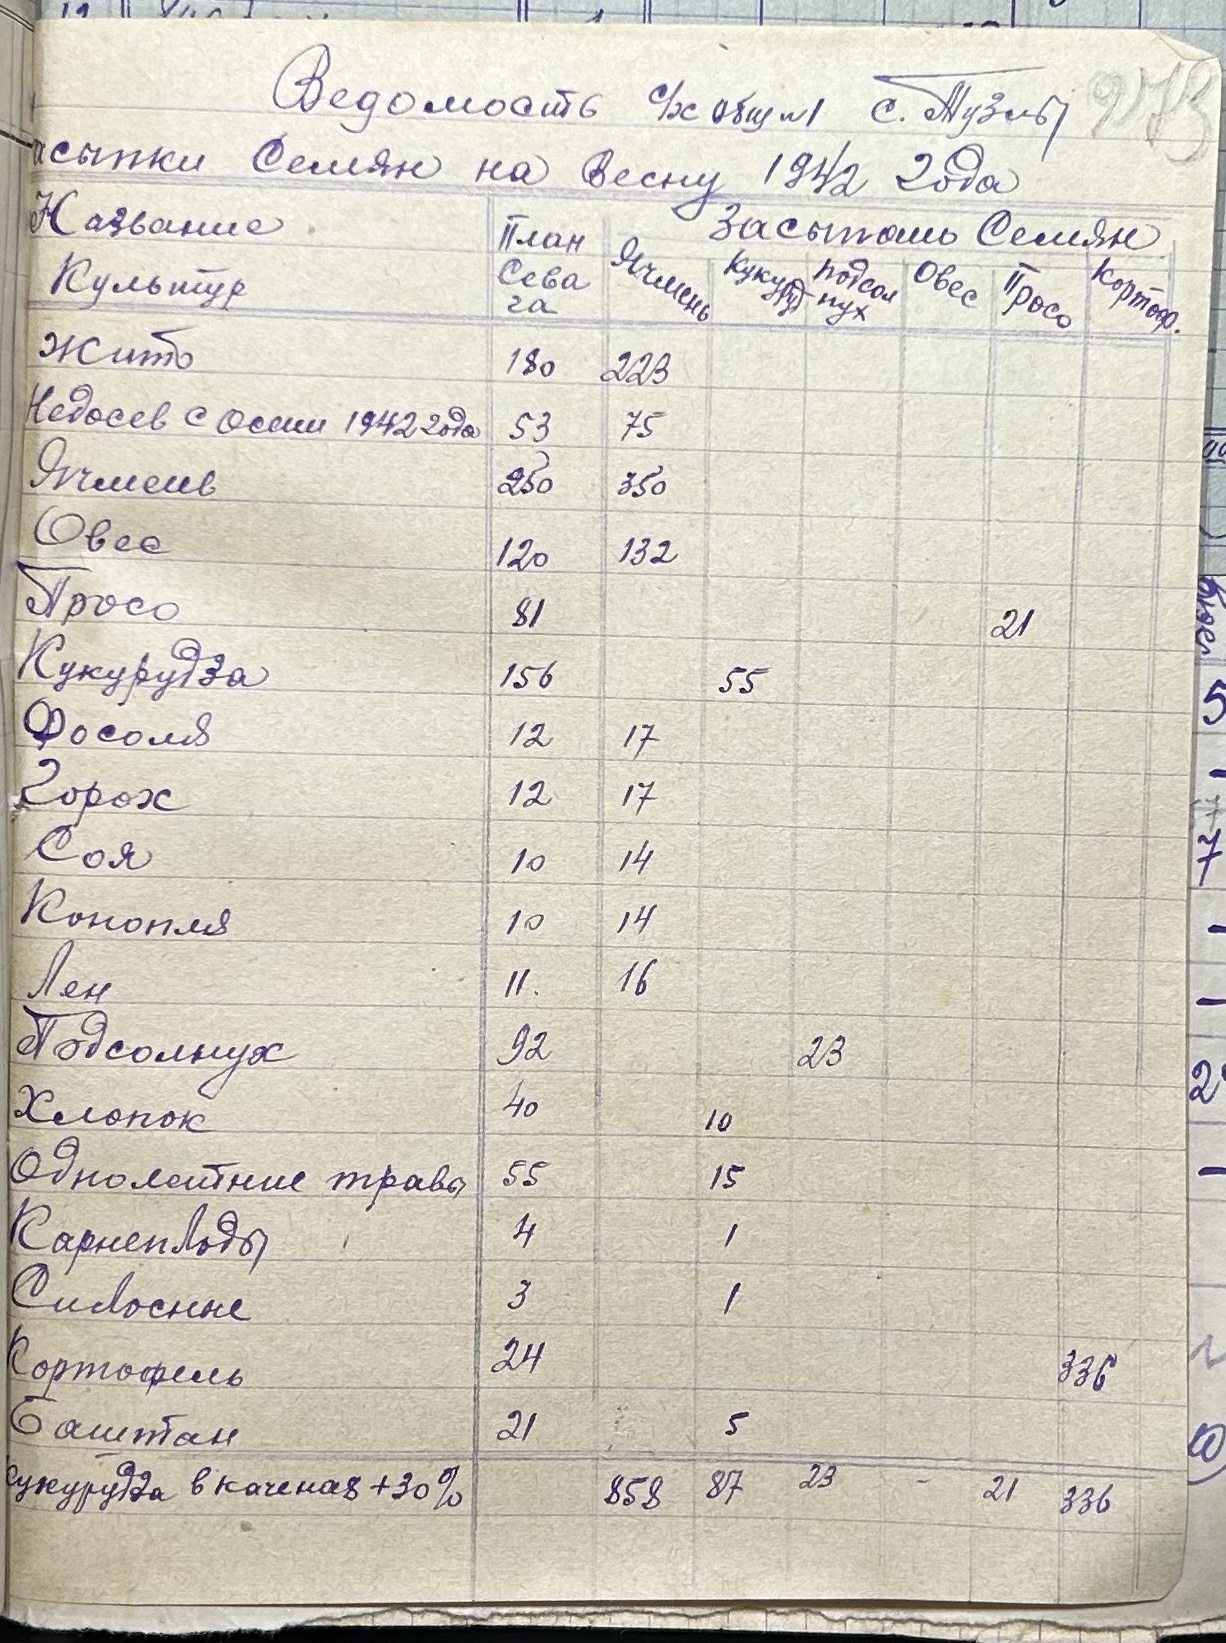 Ведомость с/х общ №1 с. Тузлы 973
асыпки Семян на Весну 1942 года
Название План Засыпать Семян
Культур Сева га Ячмень Кукуруд Подсолнух Овес Просо Кортоф.
Жито 180 223
Недосев с осени 1942 года 53 75
Ячмень 250 350
Овес 120 132
Просо 81 21
Кукурудза 156 55
Фосоля 12 17
Горох 12 17
Соя 10 14
Конопля 10 14
Лен 11. 16
Подсолнух 92 23
Хлопок 40 10
Однолетние травы 55 15
Карнеплоды 4 1
Силосние 3 1
Кортофель 24 336
Баштан 21 5
кукурудза в каченах +30% 858 87 23 - 21 336